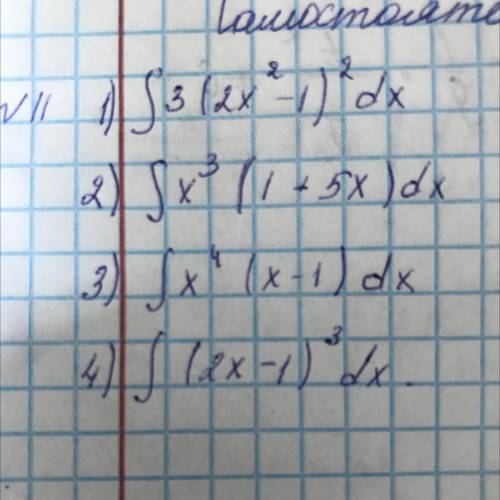 Самостояте
VII 1) ∫3(2x²-1)²dx
2) ∫x³(1+5x)dx
3) ∫x⁴(x-1)dx
4) ∫(2x-1)³dx.